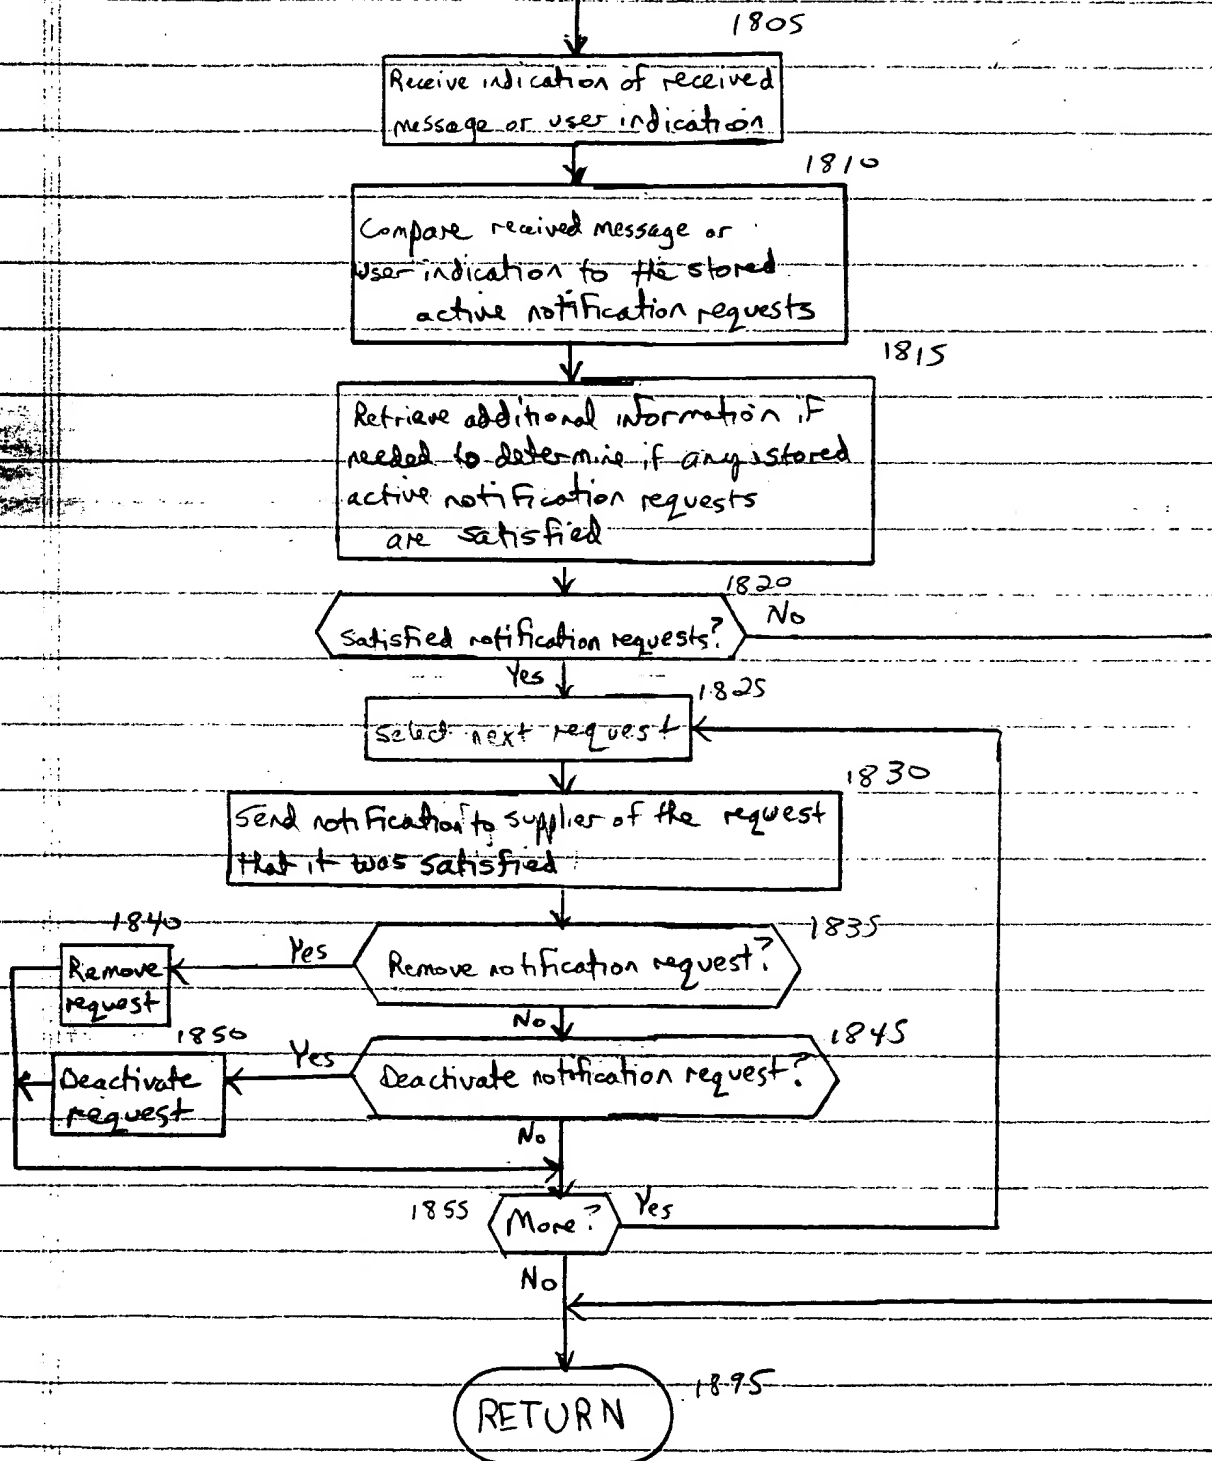 1805
Receive indication of received
message or user indication
1810
Compare received message or
user indication to the stored
active notification requests
1815
Retrieve additional information if
needed to determine if any stored
active notification requests
are satisfied
1820
Satisfied notification requests?
No
Yes
1825
Select next request
1830
Send notification to supplier of the request
that it was satisfied
1840
1835
Yes
Remove notification request?
Remove
request
No
1850
1845
Yes
Deactivate notification request?
Deactivate
request
No
1855
More?
Yes
No
1895
RETURN